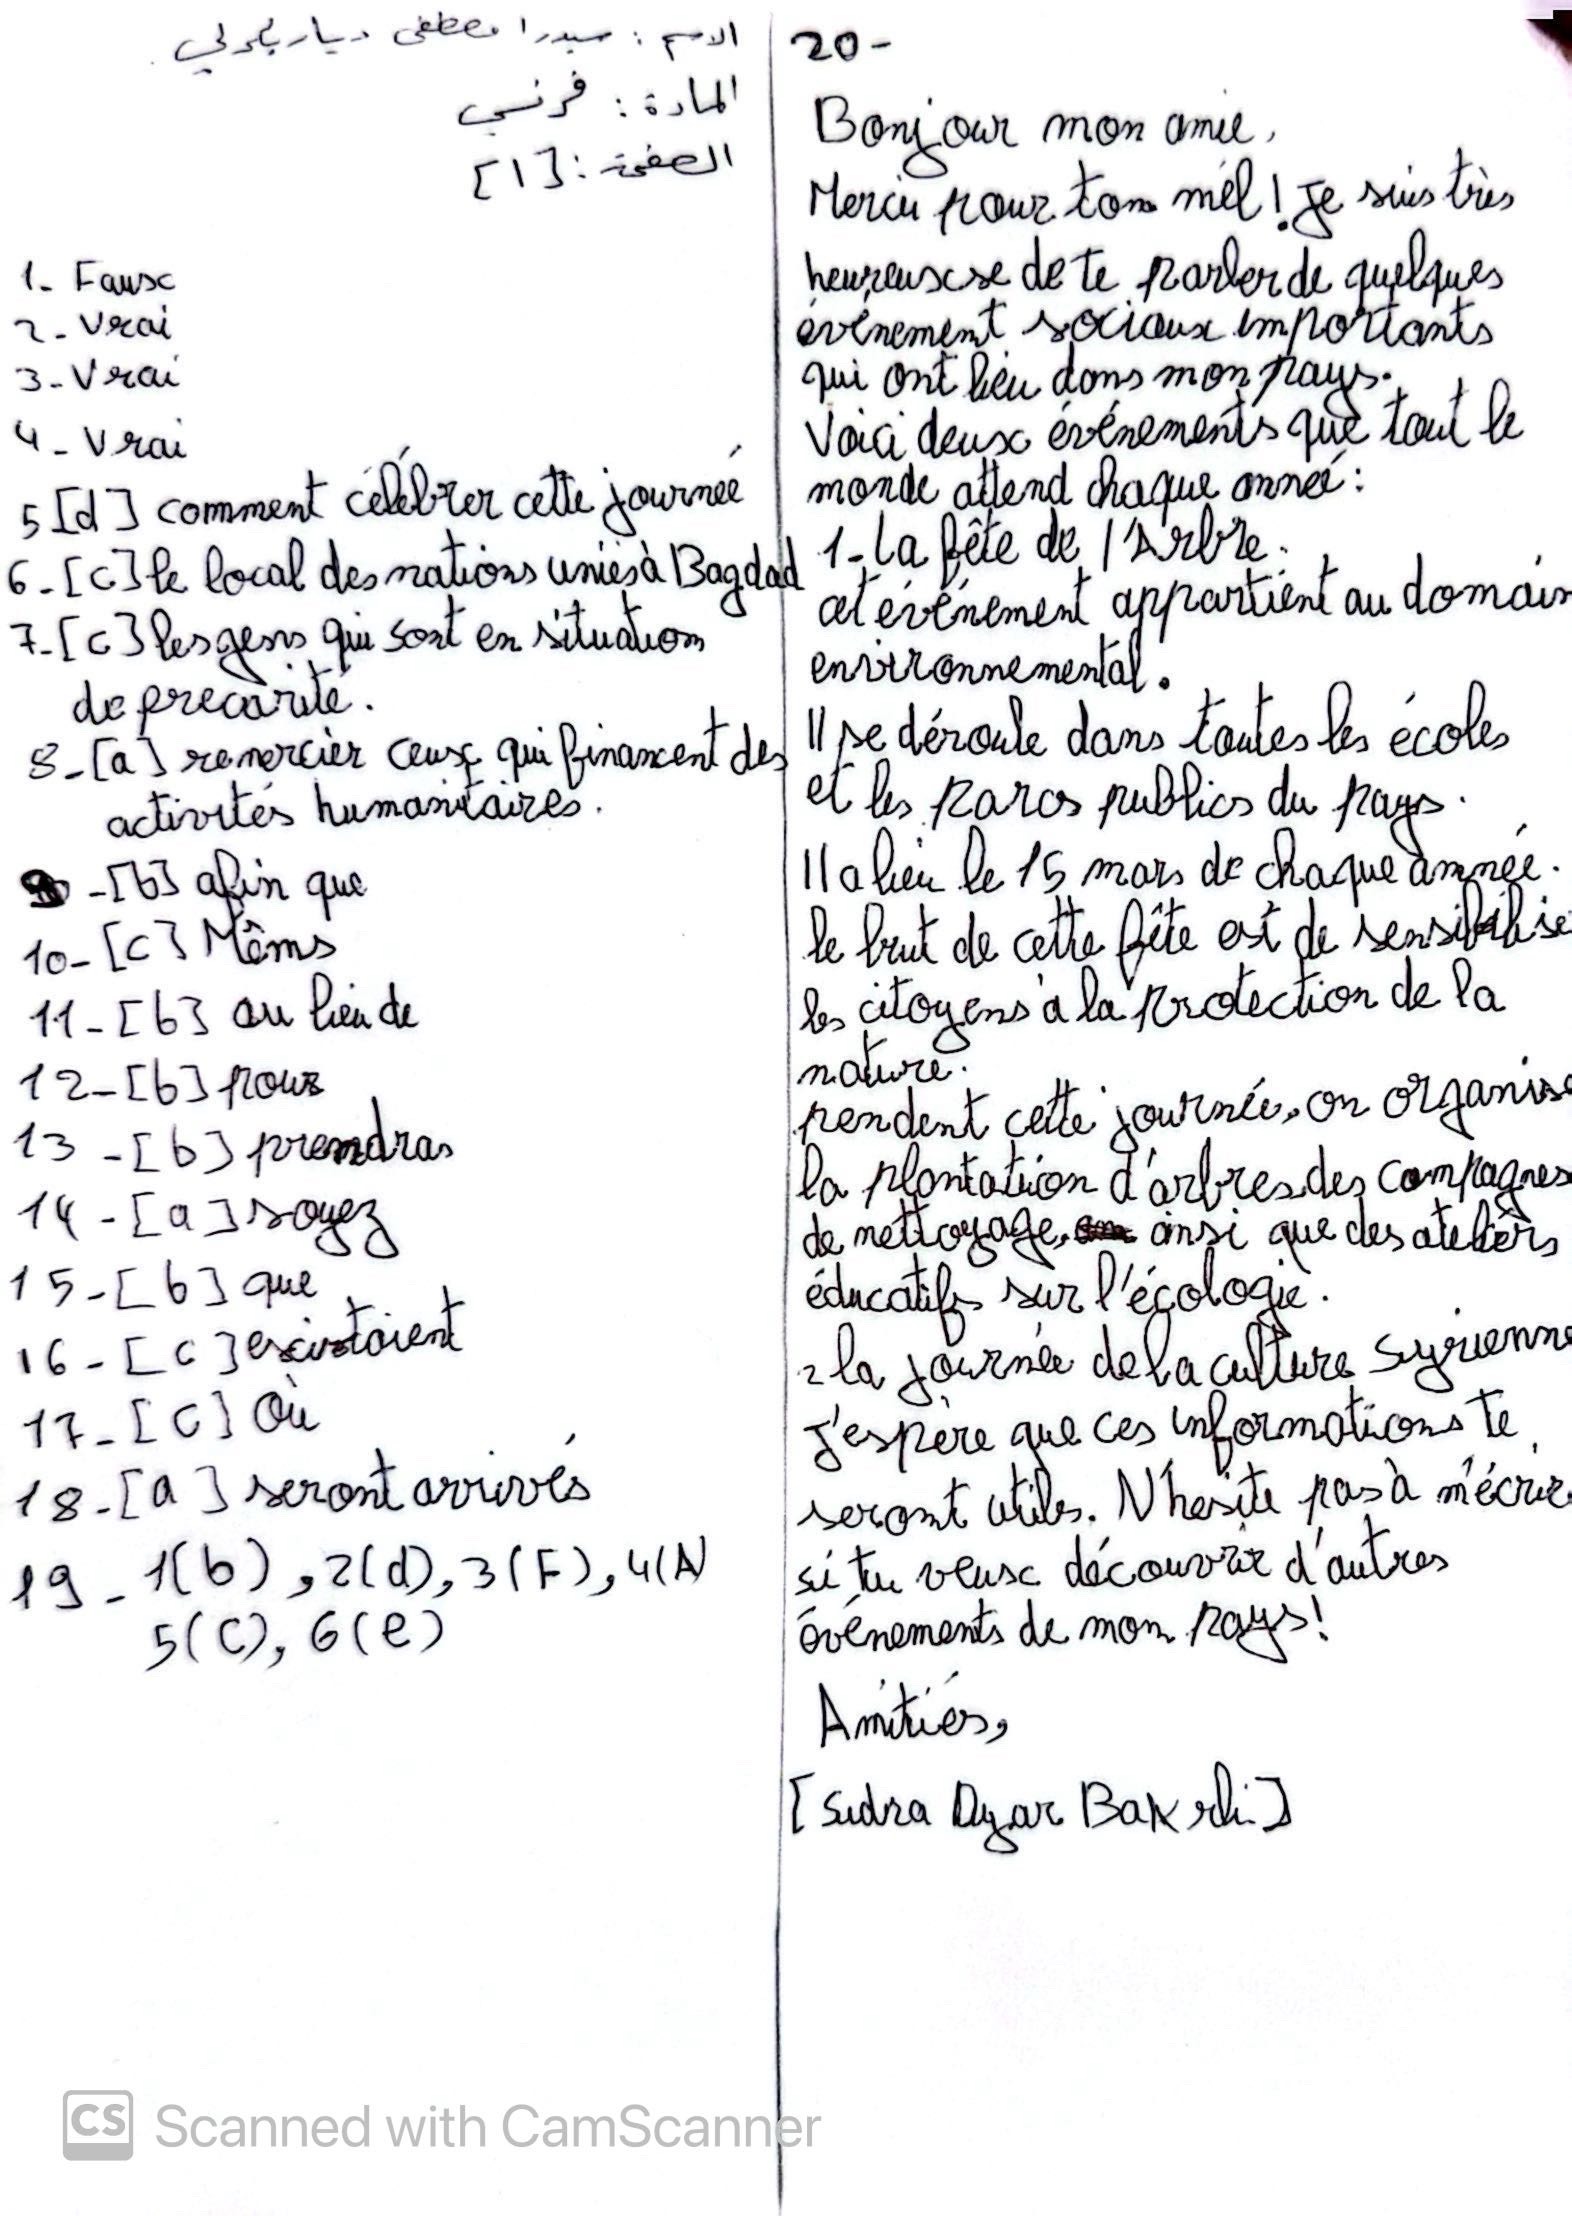 الاسم : سيدرا مصطفى ديار بكرلي
المادة : فرنسي
الصفحة : [1]
1- Fausx
2- Vrai
3- Vrai
4- Vrai
5 [d] comment célébrer cette journeé
6- [c] le local des nations uniesà Bagdad
7- [c] les gens qui sont en situation
de precarité.
8- [a] remercier ceux qui financent des
activités humanitaires.
9 -[b] afin que
10- [c] Mêms
11- [b] au lieu de
12- [b] pour
13 -[b] prendras
14 -[a] soyez
15-[b] que
16 -[c] existaient
17-[c] Où
18-[a] seront arrivés
19 - 1(b), 2(d), 3(F), 4(A)
5(C), 6(e)
20-
Bonjour mon amie,
Merci pour ton mél! Je suis très
heureuxse de te parler de quelques
événement sociaux importants
qui ont lieu dans mon pays.
Voici deux événements que tout le
monde attend chaque anneé:
1- La fête de l'Arbre.
cet événement appartient au domain
environnemental.
Il se déroule dans toutes les écoles
et les parcs publics du pays.
Il a lieu le 15 mars de chaque année.
le brut de cette fête est de sensibilise
les citoyens à la protection de la
nature.
pendent cette journée, on organise
la plantation d'arbres, des compagnes
de nettoyage, ainsi que des ateliers
éducatifs sur l'écologie.
2 la journée de la culture Syrienne
J'espère que ces informations te
seront utiles. N'hesite pas à m'écrire
si tu veux découvrir d'autres
événements de mon pays!
Amitiés,
[Sidra Dyar Bakrli]
CS Scanned with CamScanner